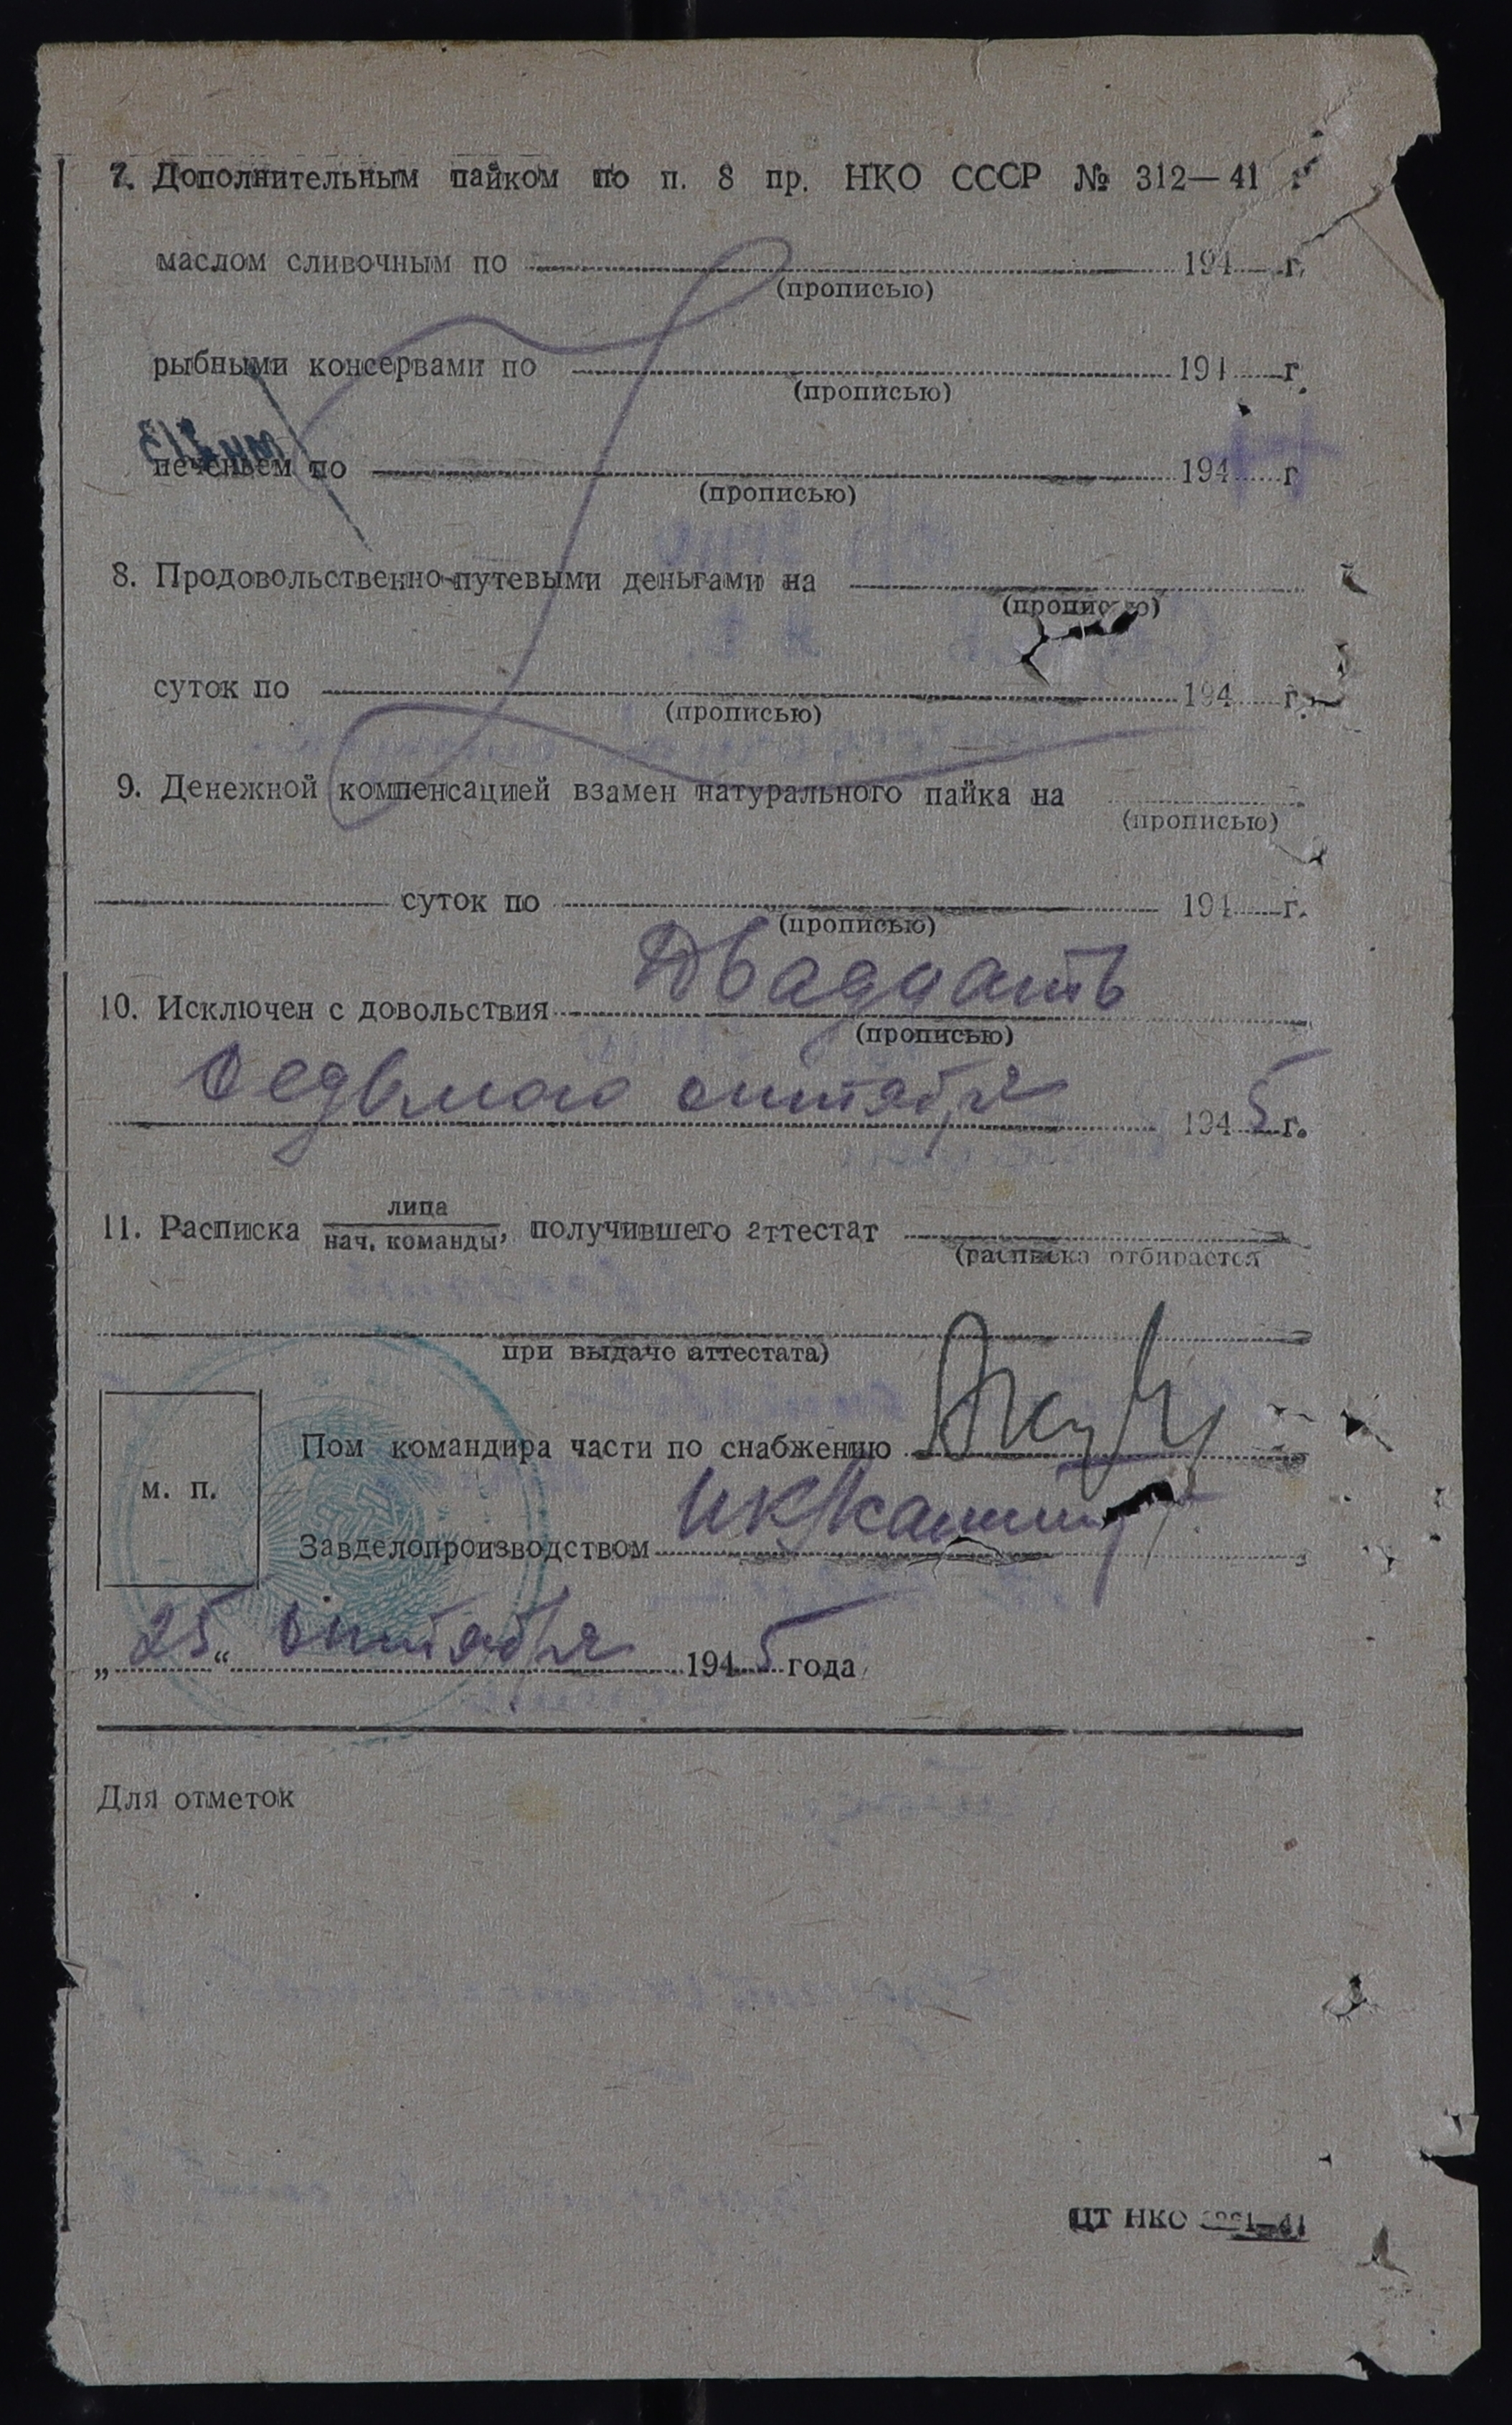 7. Дополнительным пайком по п. 8 пр. НКО СССР № 312—41 г
маслом сливочным по 194 г.
(прописью)
рыбными консервами по 194 г.
(прописью)
печеньем по 194 г
(прописью)
8. Продовольственно-путевыми деньгами на
(прописью)
суток по 194 г.
(прописью)
9. Денежной компенсацией взамен натурального пайка на
(прописью)
суток по 194 г.
(прописью)
10. Исключен с довольствия Двадцать
(прописью)
седьмого октября 1945 г.
11. Расписка лица / нач. команды, получившего аттестат
(расписка отбирается
при выдаче аттестата)
Пом командира части по снабжению
м. п.
Завделопроизводством
„25“ октября 1945 года
Для отметок
ЦТ НКО